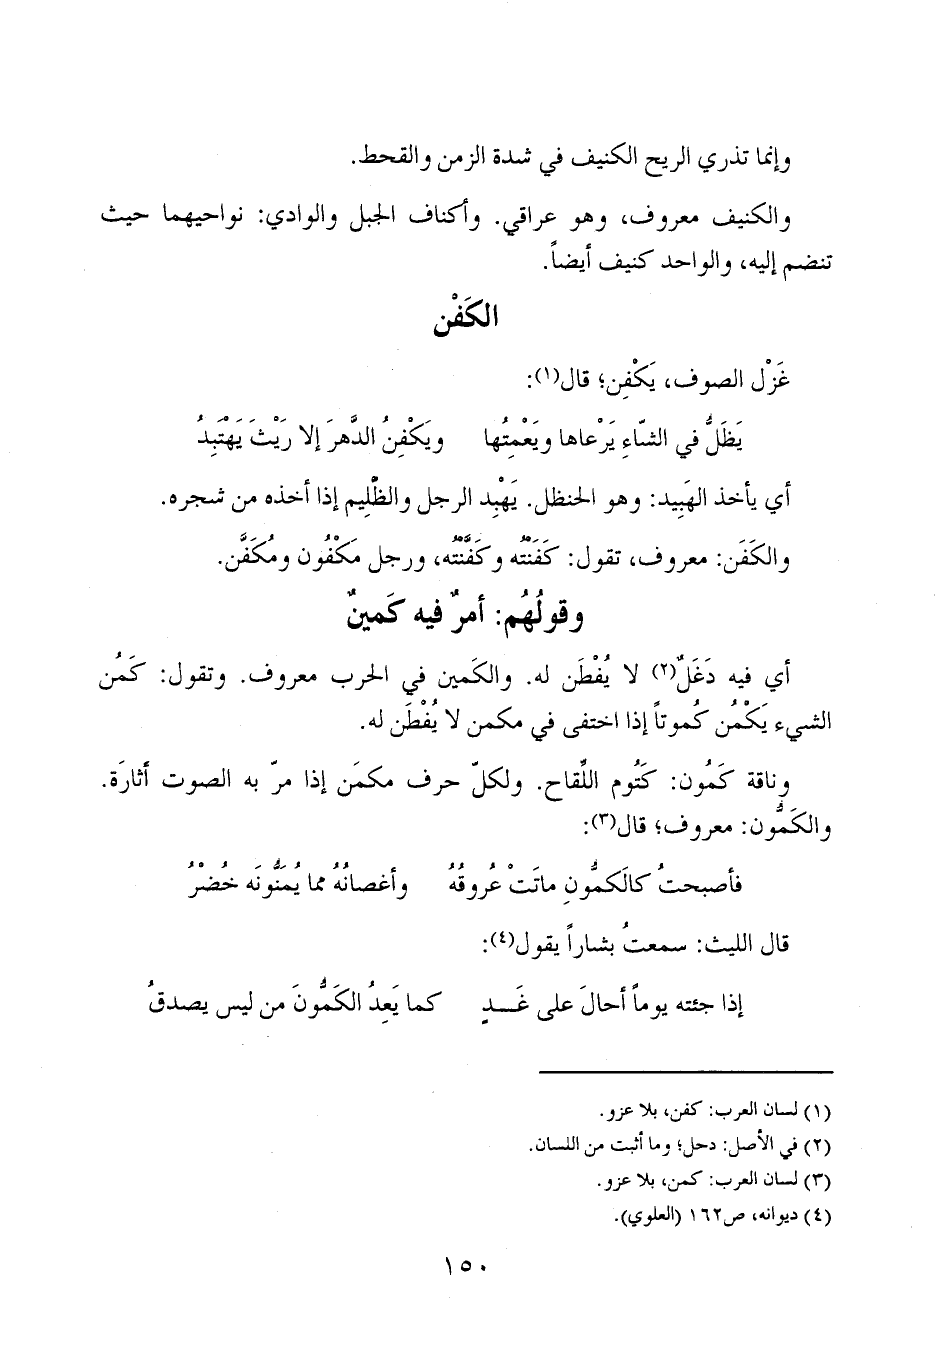 وإنما تذري الريح الكنيف في شدة الزمن والقحط.
والكنيف معروف، وهو عراقي. وأكناف الجبل والوادي: نواحيهما حيث
تنضم إليه، والواحد كنيف أيضاً.
الكَفْن
غَزْل الصوف، يَكْفِن؛ قال(١):
يَظَلُّ في الشّاءِ يَرْعاها ويَعْمِتُها ويَكْفِنُ الدَّهرَ إلا رَيْثَ يَهْتَبِدُ
أي يأخذ الهَبِيد: وهو الحنظل. يَهْبِد الرجل والظَّلِيم إذا أخذه من شجره.
والكَفَن: معروف، تقول: كَفَنْتُه وكَفَّنْتُه، ورجل مَكْفُون ومُكَفَّن.
وقولُهُم: أمرٌ فيه كَمينٌ
أي فيه دَغَلٌ(٢) لا يُفْطَن له. والكَمين في الحرب معروف. وتقول: كَمُن
الشيء يَكْمُن كُموتاً إذا اختفى في مكمن لا يُفْطَن له.
وناقة كَمُون: كَتُوم اللِّقاح. ولكلّ حرف مكمَن إذا مرّ به الصوت أثارَة.
والكَمُّون: معروف؛ قال(٣):
فأصبحتُ كالَكمُّونِ ماتَتْ عُروقُهُ وأغصانُهُ مما يُمَنُّونَه خُضْرُ
قال الليث: سمعتُ بشاراً يقول(٤):
إذا جئته يوماً أحالَ على غَـــدٍ كما يَعِدُ الكَمُّونَ من ليس يصدقُ
(١) لسان العرب: كفن، بلا عزو.
(٢) في الأصل: دحل؛ وما أثبت من اللسان.
(٣) لسان العرب: كمن، بلا عزو.
(٤) ديوانه، ص١٦٢ (العلوي).
١٥٠